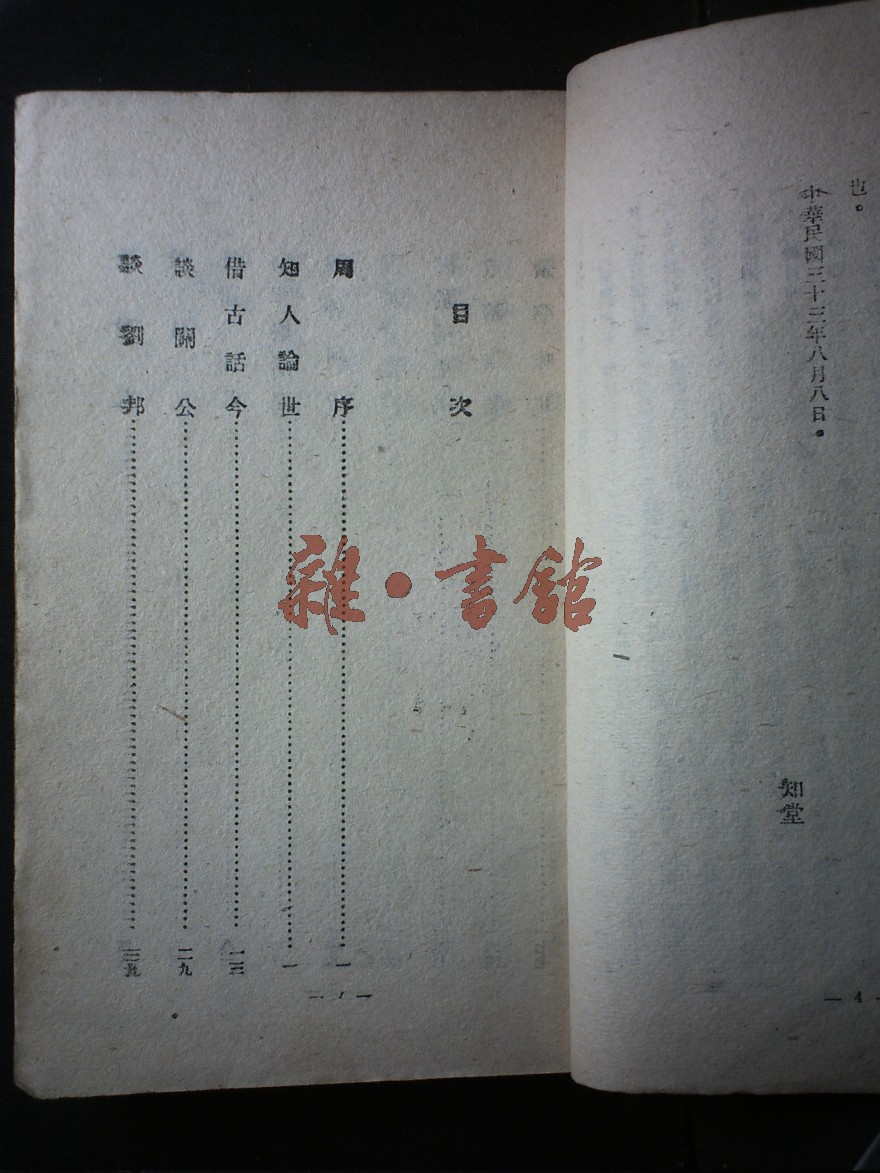 也。
中華民國三十三年八月八日。
知堂
— 4 —
目次
周序……一
知人論世……一
借古話今……一三
談關公……二九
談劉邦……三九
— 1 —
雜·書館